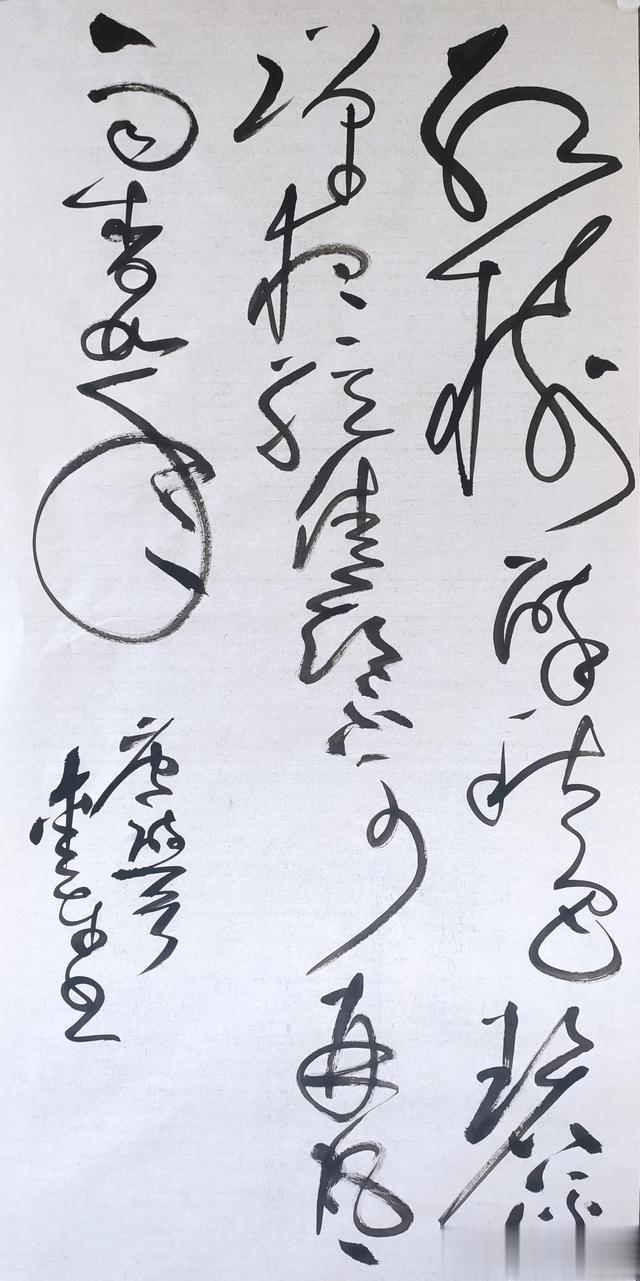 红树醉秋色碧溪
弹夜弦佳期不可再风
雨杳如年
唐诗一首